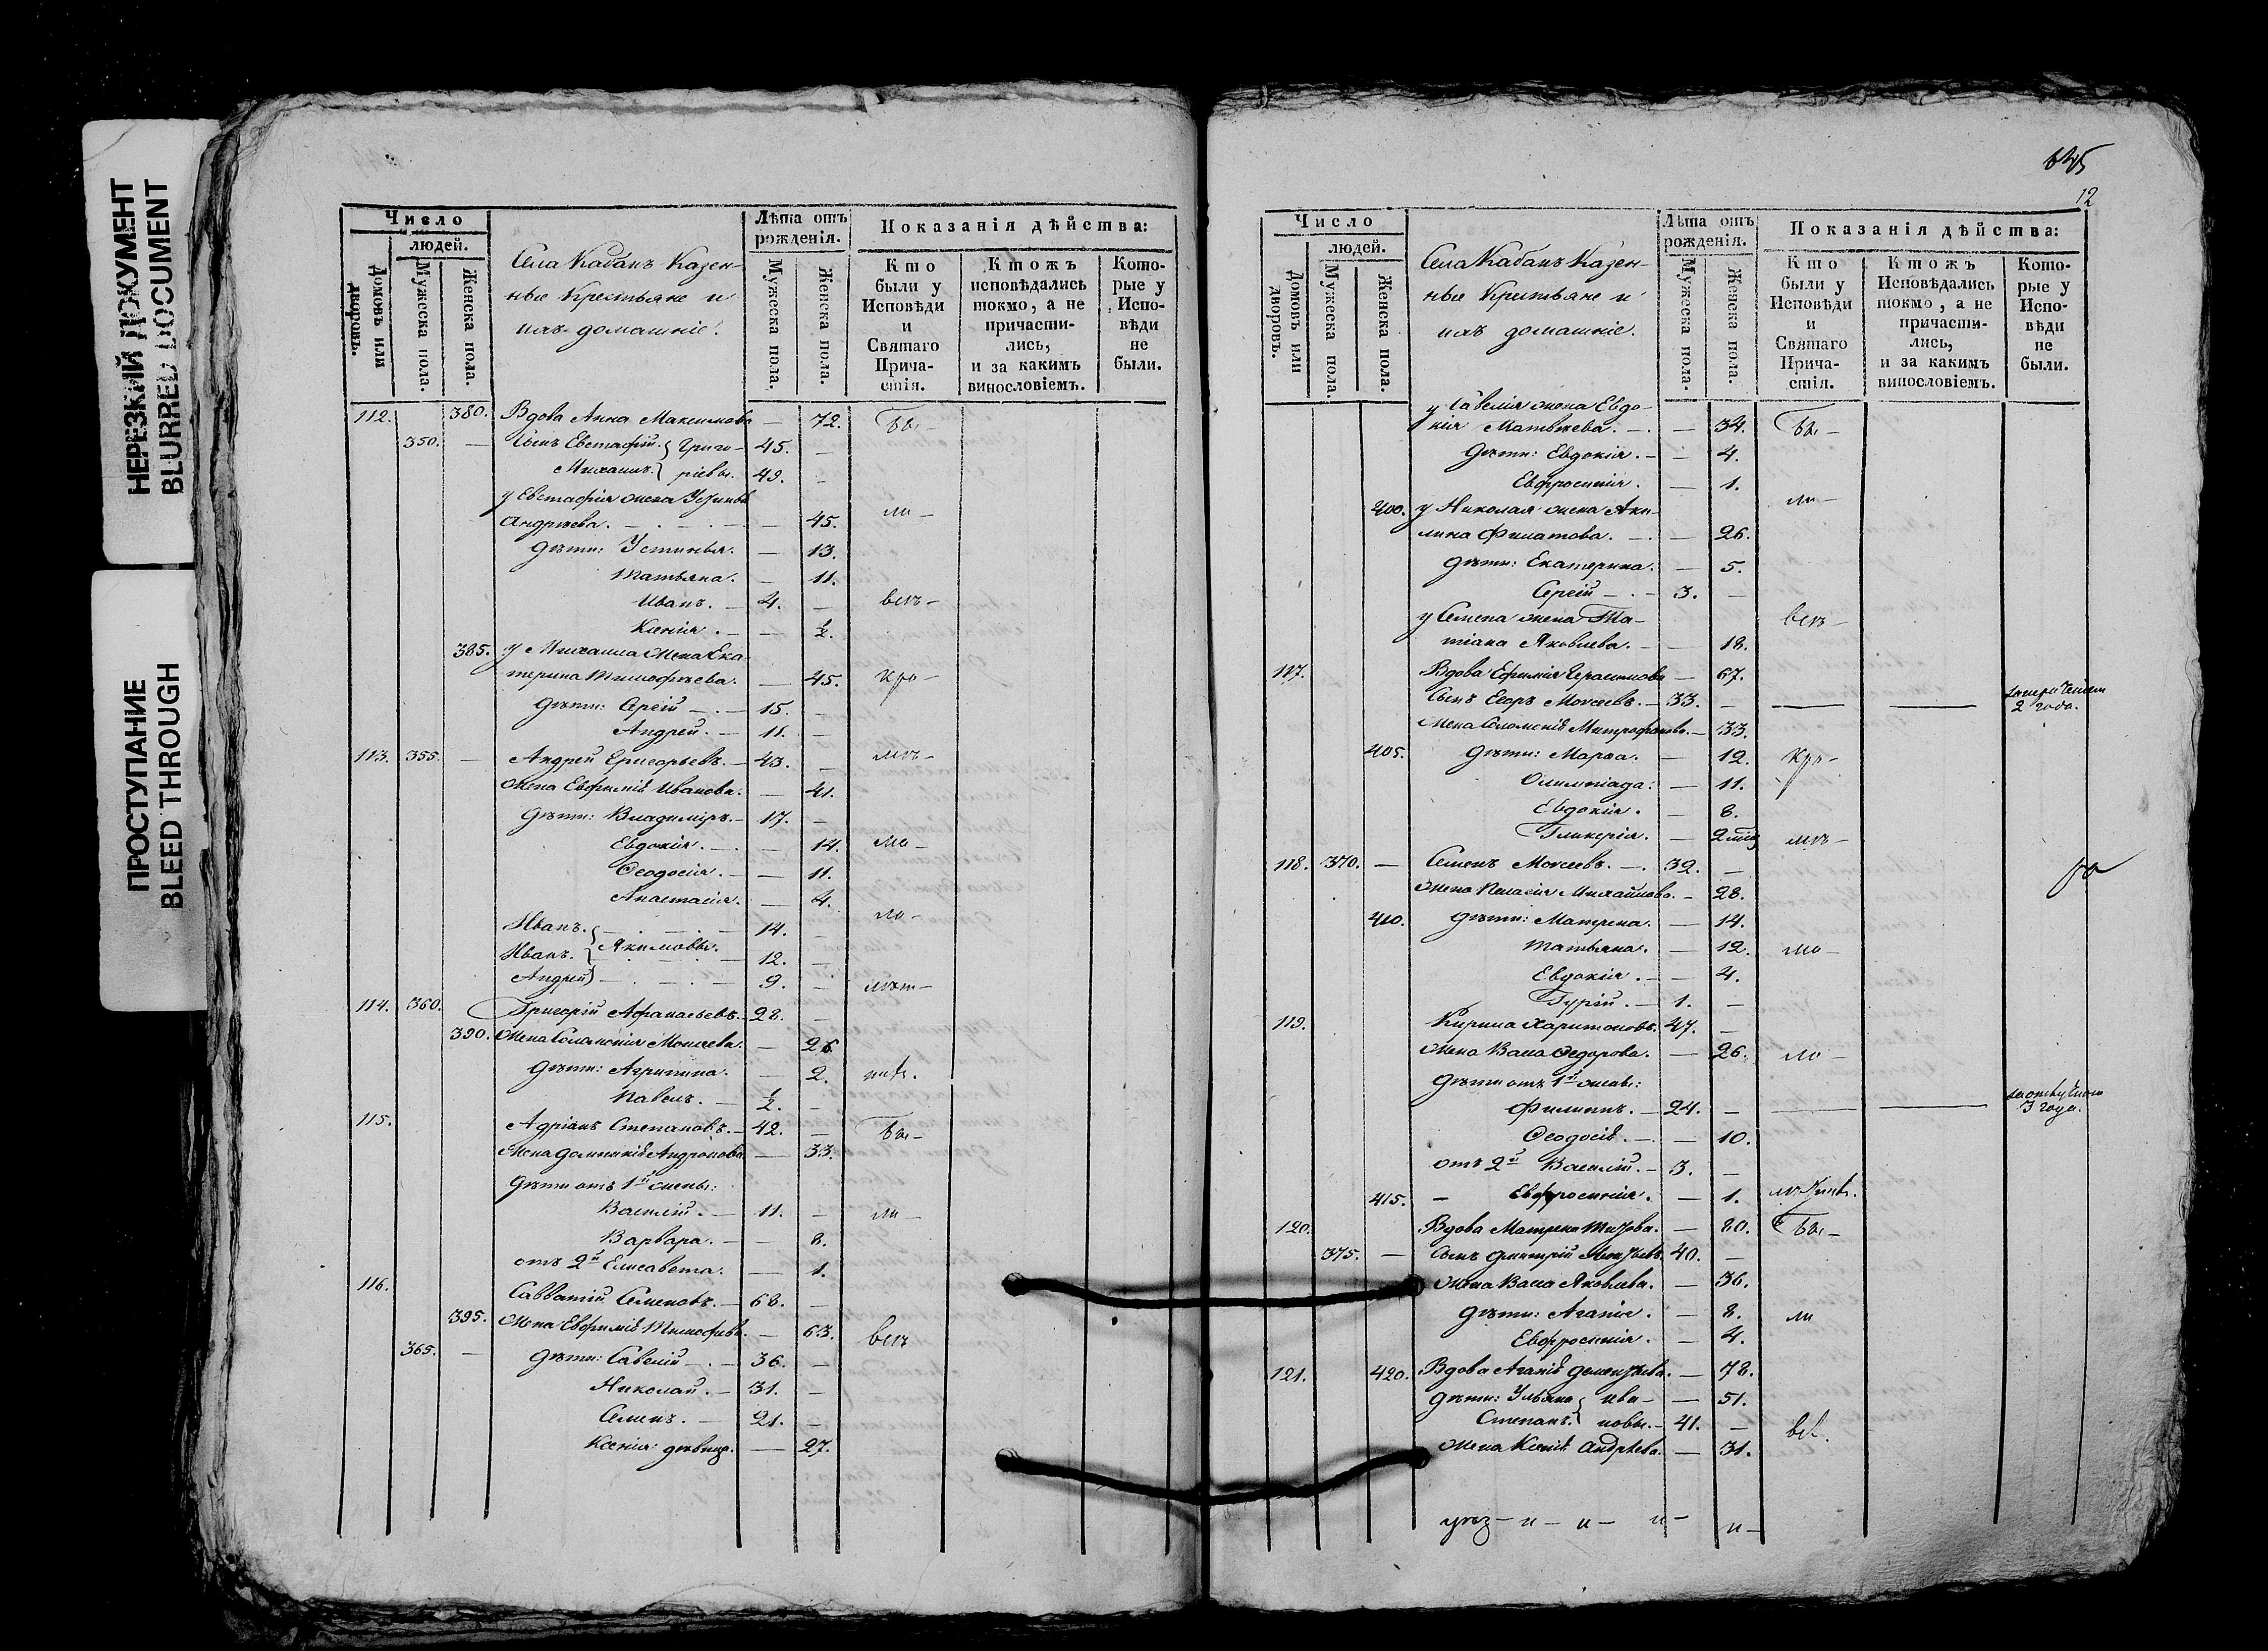 НЕРЕЗКИЙ ДОКУМЕНТ
BLURRED DOCUMENT
ПРОСТУПАНИЕ
BLEED THROUGH
Число
людей.
Домовъ или дворовъ.
Мужеска пола.
Женска пола.
Села Кабанъ Казен-
ные Крестьяне и
ихъ домашніе.
Лѣта отъ рожденія.
Мужеска пола.
Женска пола.
Показанія дѣйства:
Кто были у Исповѣди и Святаго Причастія.
Ктожъ исповѣдались токмо, а не причастились, и за какимъ винословіемъ.
Которые у Исповѣди не были.
112. 380. Вдова Анна Максимова — 72. Бы-
350. — Сынъ Евстафій Григо- 45. —
Михаилъ ріевы. 49. —
у Евстафія жена Устинья
Андреева. — 45. ли-
Дѣти: Устинья. — 13.
Татьяна. — 11.
Иванъ. — 4. — всѣ-
Ксенія. — ½.
385. у Михаила жена Ека-
терина Тимофѣева. — 45. Кро-
Дѣти: Сергій — 15. —
Андрей. — 11. —
113. 355. — Андрей Григорьевъ. — 43. — мѣ-
Жена Евфимія Иванова. — 41.
Дѣти: Владиміръ. — 17. —
Евдокія. — 14. ма-
Ѳеодосія. — 11.
Анастасія. — 4.
Иванъ. — 14. — ло-
Иванъ. Якимовы. 12. —
Андрей — 9. — лѣт-
114. 360. Григорій Афанасьевъ. 28. —
390. Жена Соломонія Моисеева. — 26
Дѣти: Агрипина. — 2. нихъ.
Павелъ. — ½. —
115. Адріанъ Степановъ. — 42. — Бы-
Жена Домникія Андронова — 33.
Дѣти отъ 1й жены:
Василій. — 11. — ли-
Варвара. — 8.
отъ 2й Елисавета. — 1.
116. Савватій Семеновъ. — 68. —
395. Жена Евфимія Тимофеева. — 63. всѣ
365. — Дѣти: Савелій — 36. —
Николай. — 31. —
Семенъ. — 21. —
Ксенія дѣвица. — 27.
12
Число
людей.
Домовъ или дворовъ.
Мужеска пола.
Женска пола.
Села Кабанъ Казен-
ные Крестьяне и
ихъ домашніе.
Лѣта отъ рожденія.
Мужеска пола.
Женска пола.
Показанія дѣйства:
Кто были у Исповѣди и Святаго Причастія.
Ктожъ Исповѣдались токмо, а не причастились, и за какимъ винословіемъ.
Которые у Исповѣди не были.
у Савелія жена Евдо-
кія Матвѣева. — 34. Бы-
Дѣти: Евдокія. — 4.
Евфросинія. — 1.
400. у Николая жена Аки- ли-
лина Филатова. — 26.
Дѣти: Екатерина. — 5.
Сергій — 3. —
у Семена жена Та- всѣ-
тіана Яковлева. — 18.
117. Вдова Ефимія Герасимова — 67.
Сынъ Егоръ Моисеевъ. — 33. — 2 года.
Жена Соломонія Митрофанова. — 33.
405. Дѣти: Марѳа. — 12. Кро-
Олимпіада: — 11.
Евдокія. — 8.
Гликерія. — 2 мѣ-
118. 370. — Семенъ Моисеевъ. — 32. —
Жена Пелагія Михайлова. — 28.
410. Дѣти: Матрена. — 14.
Татьяна. — 12. ма-
Евдокія. — 4.
Гурій. — 1. —
119. Кирила Харитоновъ. 47. —
Жена Васса Ѳедорова. — 26. ло-
Дѣти отъ 1й жены:
Филипъ. — 24. — 3 года.
Ѳеодосія. — 10.
отъ 2й Василій. — 3. —
415. — Евфросинія. — 1.
120. Вдова Матрена Титова. — 80. Бы-
375. — Сынъ Дмитрій 40. —
Жена Васса Яковлева. — 36.
Дѣти: Агапія. — 8. ли
Евфросинія. — 4.
121. 420. Вдова Агапія Дементьева. — 78.
Дѣти: Ульяна Ива- — 51.
Степанъ новы. — 41. — всѣ.
Жена Ксенія Андреева. — 31.